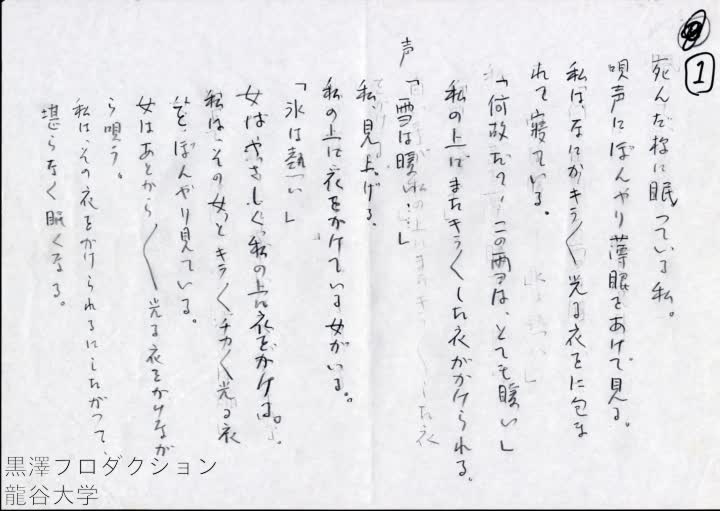 1
死んだ様に眠っている私。
唄声にぼんやり薄眼をあけて見る。
私は、なにかキラ〱光る衣をに包ま
れて寝ている。
「何故だろ、この雪は、とても暖い」
私の上にまたキラ〱した衣がかけられる。
声「雪は暖い…」
私、見上げる。
私の上に衣をかけている女がいる。
「氷は熱い」
女はやさしく、私の上に衣をかける。
私は、その女とキラ〱チカ〱光る衣
を、ぼんやり見ている。
女はあとから〱光る衣をかけなが
ら唄う。
私は、その衣をかけられるにしたがって、
堪らなく眠くなる。
黒澤プロダクション
龍谷大学